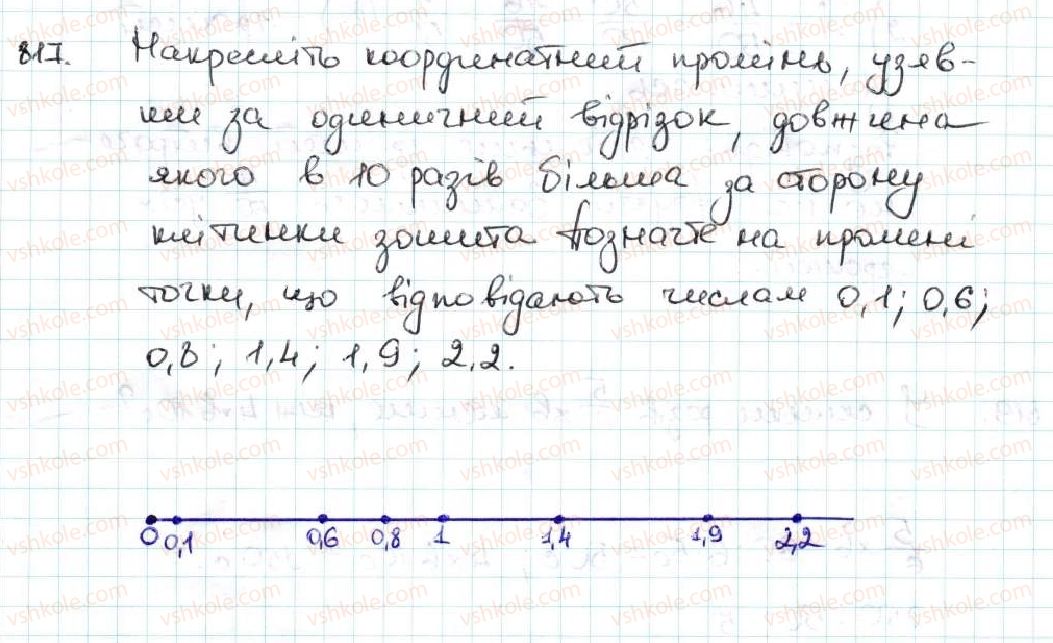 817. Накресліть координатний промінь, узяв-
ши за одиничний відрізок, довжина
якого в 10 разів більша за сторону
клітинки зошита Позначте на промені
точки, що відповідають числам 0,1; 0,6;
0,8; 1,4; 1,9; 2,2.
0 0,1 0,6 0,8 1 1,4 1,9 2,2